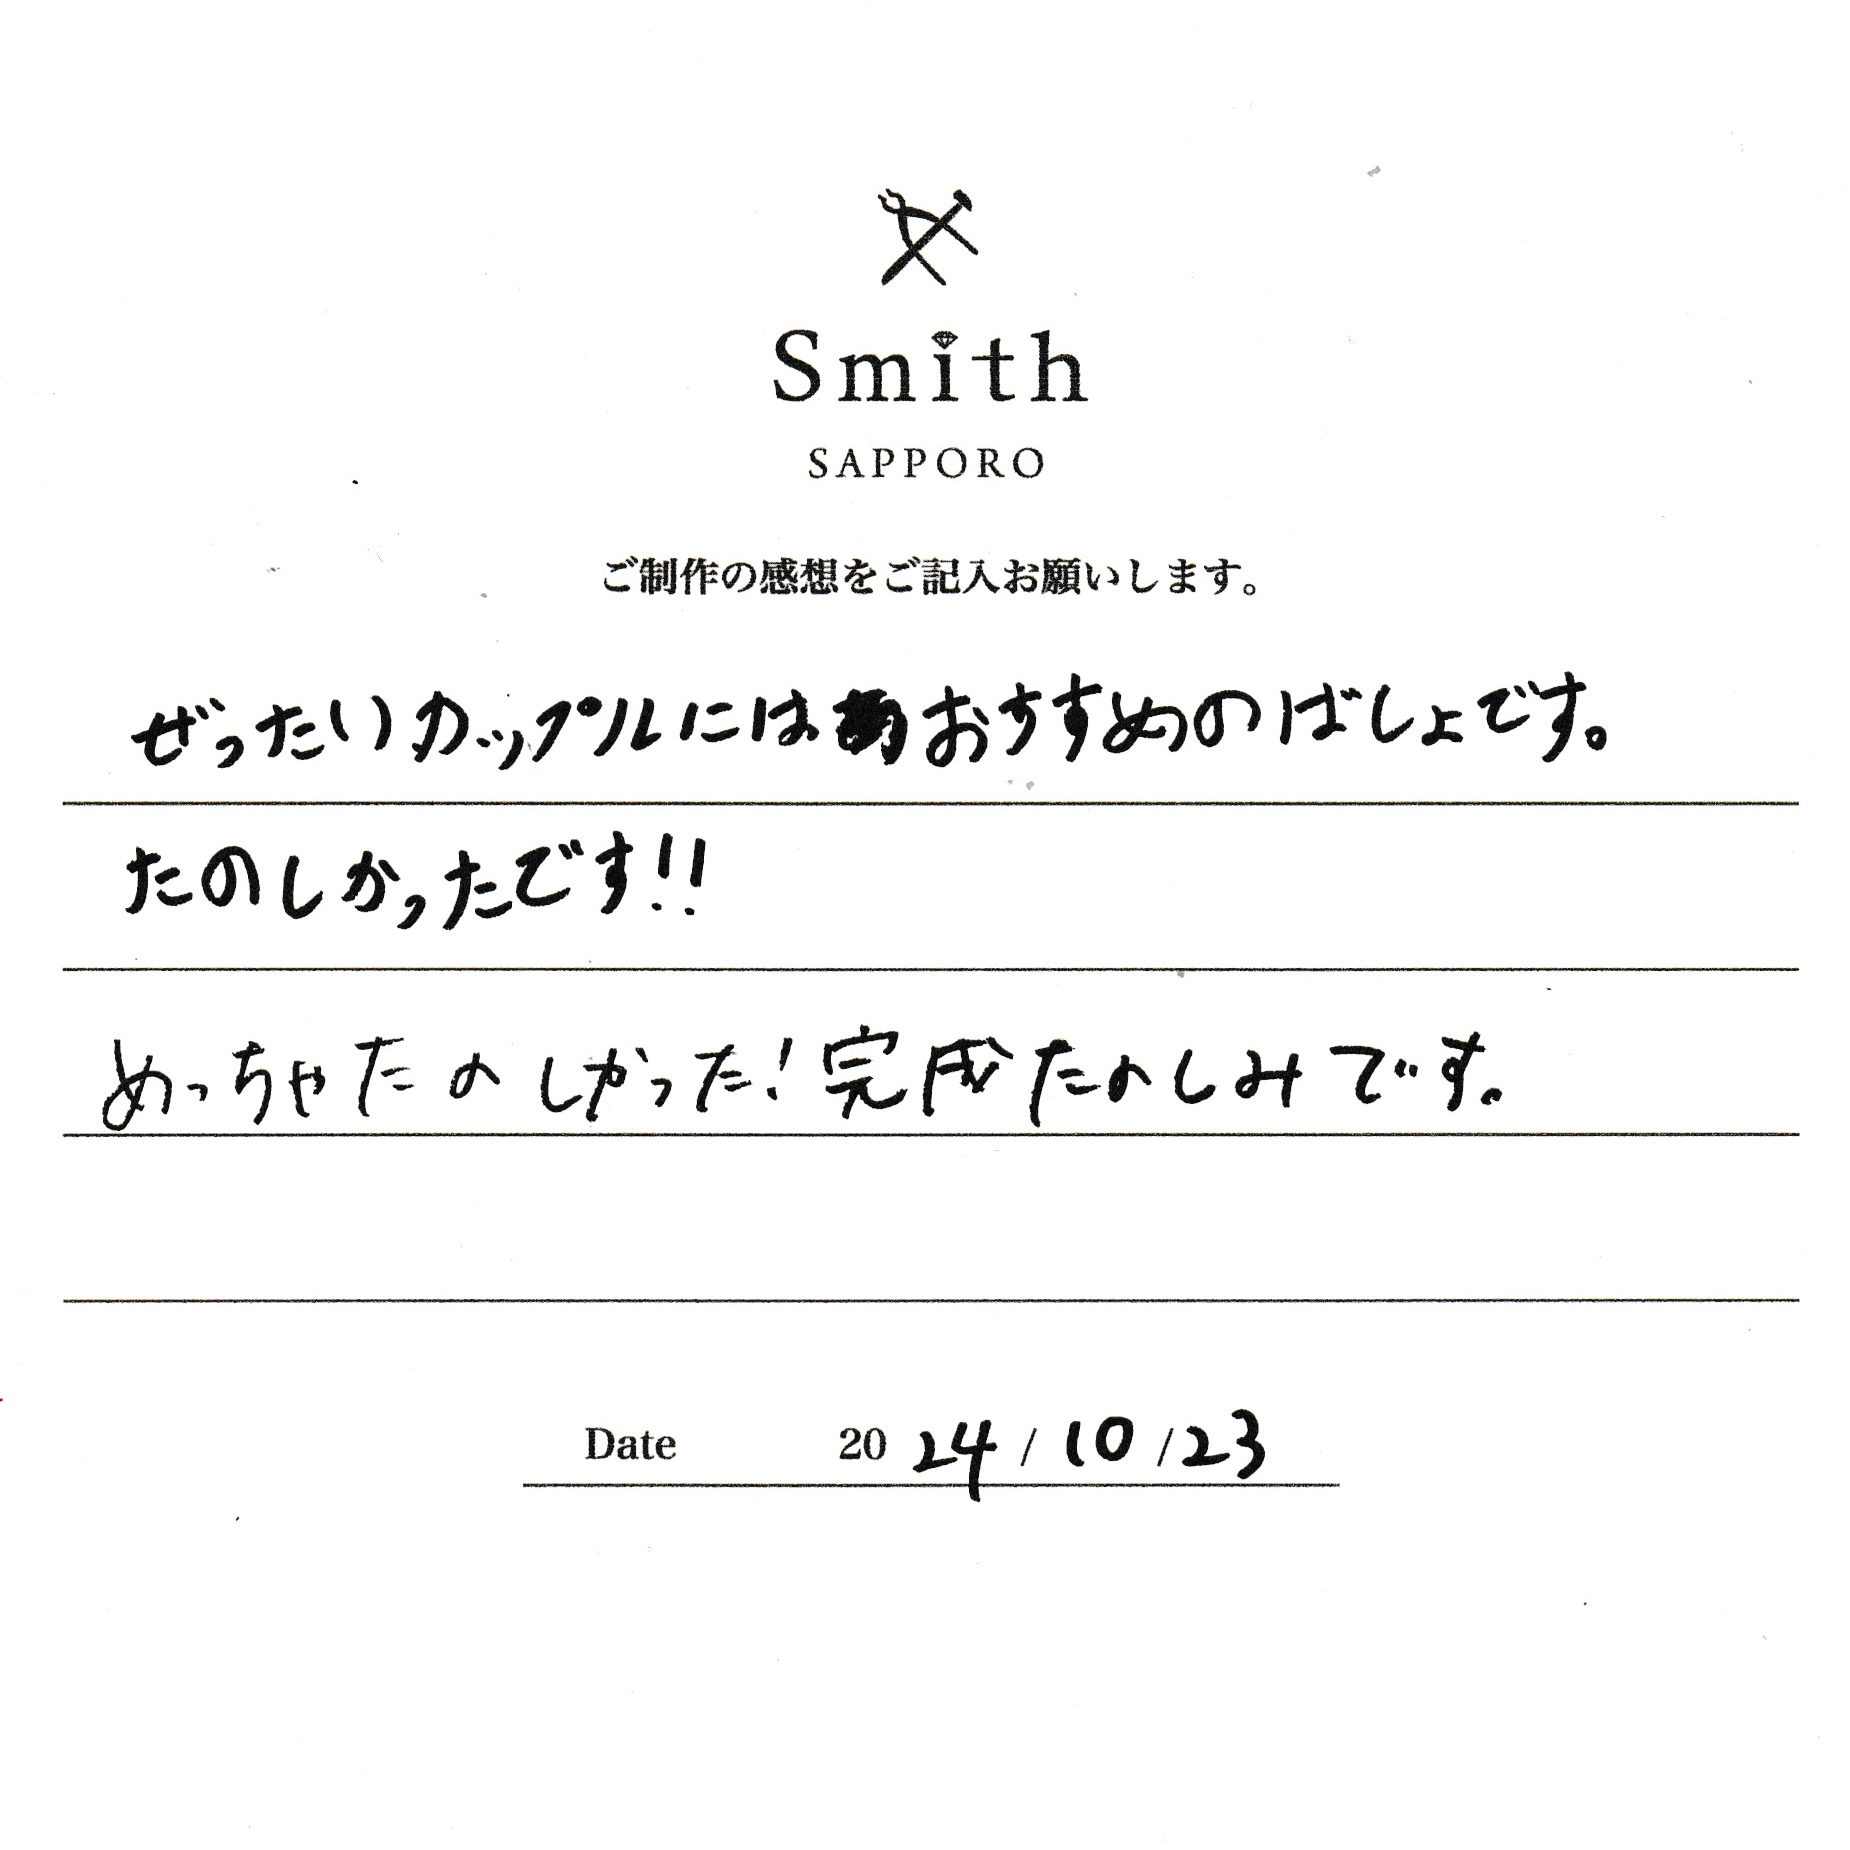 Smith
SAPPORO
ご制作の感想をご記入お願いします。
ぜったいカップルにはおすすめのばしょです。
たのしかったです!!
めっちゃたのしかった!完成たのしみです。
Date 2024/10/23